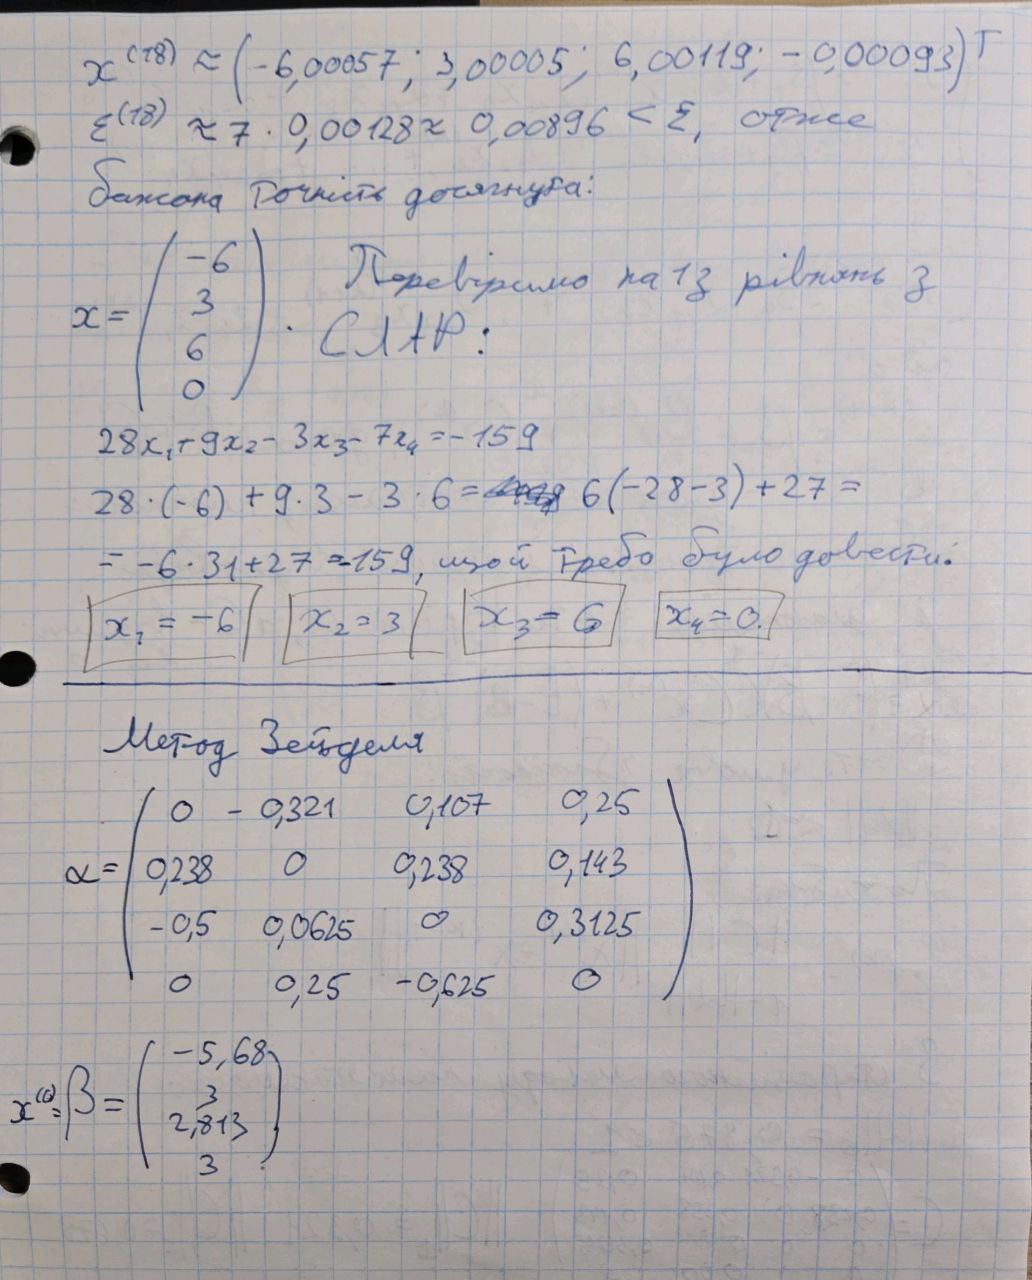 x⁽¹⁸⁾ ≈ (-6,00057; 3,00005; 6,00119; -0,00093)ᵀ
ε⁽¹⁸⁾ ≈ 7 · 0,00128 ≈ 0,00896 < ε, отже
бажана точність досягнута:
x = (-6 3 6 0). Перевіримо на 1з рівнянь з
СЛАР:
28x₁+9x₂- 3x₃- 7x₄ = -159
28·(-6) + 9·3 - 3·6 = 6(-28-3)+27 =
= -6·31+27 = -159, щой требо було довести.
x₁ = -6 x₂ = 3 x₃ = 6 x₄ = 0.
Метод Зейделя
α =
0 -0,321 0,107 0,25
0,238 0 0,238 0,143
-0,5 0,0625 0 0,3125
0 0,25 -0,625 0
x⁽⁰⁾ = β =
-5,68
3
2,813
3